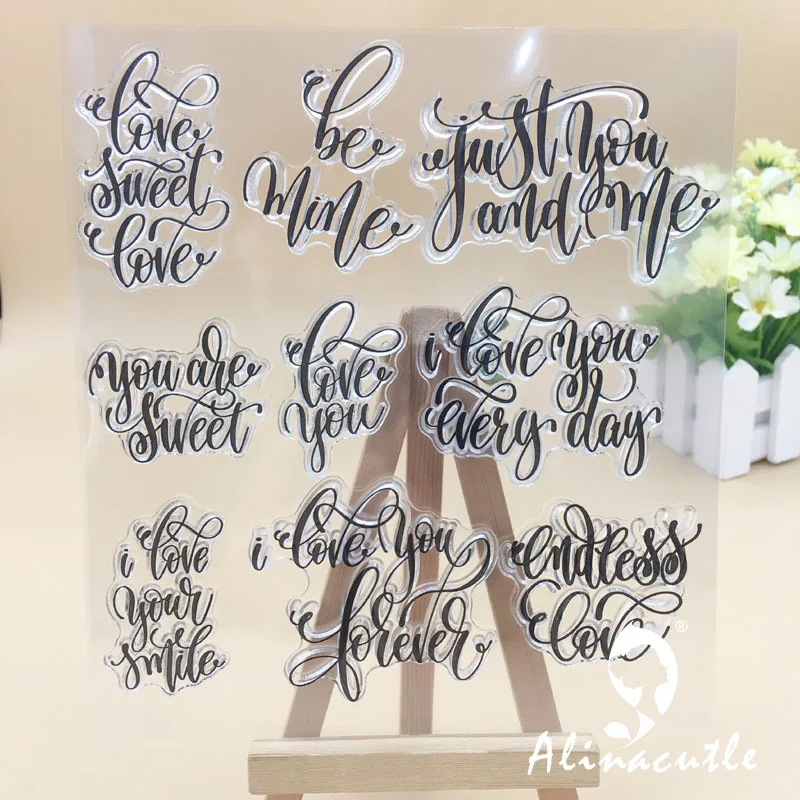 love
sweet
love
be
mine
just you
and me
you are
sweet
love
you
i love you
every day
i love
your
smile
i love you
forever
endless
love
®
Alinacutle